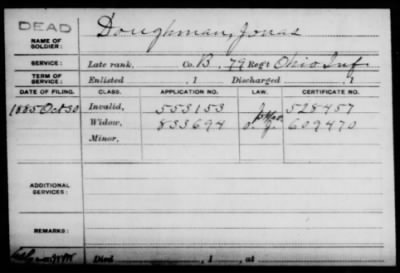 DEAD
NAME OF SOLDIER: Doughman, Jonas
SERVICE: Late rank, Co. B, 79 Reg't Ohio Inf.
TERM OF SERVICE: Enlisted , 1 Discharged , 1
DATE OF FILING. CLASS. APPLICATION NO. LAW. CERTIFICATE NO.
1885 Oct 30 Invalid, 553153 528457
Widow, 833694 609470
Minor,
ADDITIONAL SERVICES:
REMARKS:
Died , 1 , at